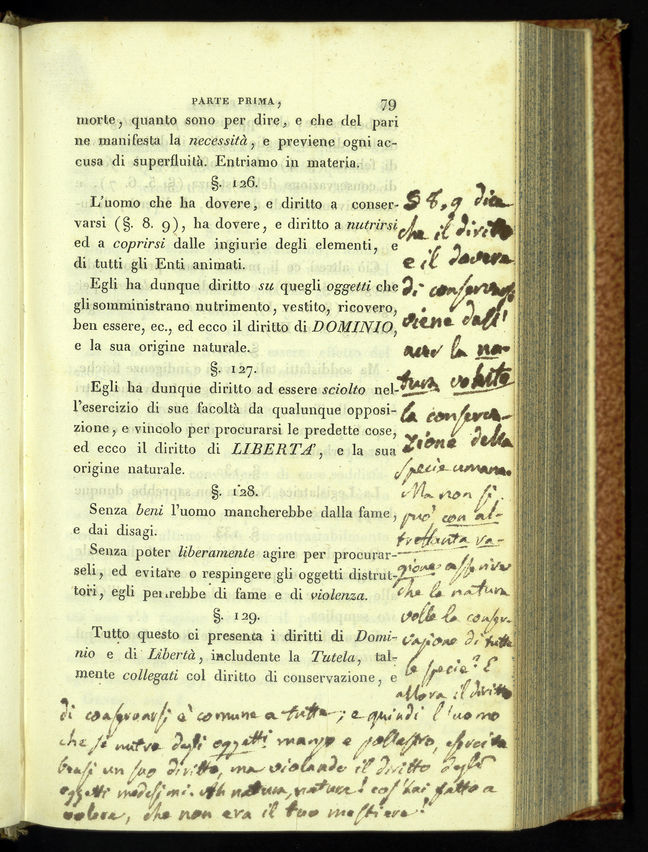 PARTE PRIMA, 79
morte, quanto sono per dire, e che del pari
ne manifesta la necessità, e previene ogni ac-
cusa di superfluità. Entriamo in materia.
§. 126.
L'uomo che ha dovere, e diritto a conser-
varsi (§. 8. 9), ha dovere, e diritto a nutrirsi
ed a coprirsi dalle ingiurie degli elementi, e
di tutti gli Enti animati.
Egli ha dunque diritto su quegli oggetti che
gli somministrano nutrimento, vestito, ricovero,
ben essere, ec., ed ecco il diritto di DOMINIO,
e la sua origine naturale.
§. 127.
Egli ha dunque diritto ad essere sciolto nel-
l'esercizio di sue facoltà da qualunque opposi-
zione, e vincolo per procurarsi le predette cose,
ed ecco il diritto di LIBERTA', e la sua
origine naturale.
§. 128.
Senza beni l'uomo mancherebbe dalla fame,
e dai disagi.
Senza poter liberamente agire per procurar-
seli, ed evitare o respingere gli oggetti distrut-
tori, egli perirebbe di fame e di violenza.
§. 129.
Tutto questo ci presenta i diritti di Domi-
nio e di Libertà, includente la Tutela, tal-
mente collegati col diritto di conservazione, e
§ 8, 9 dice
che il diritto
e il dovere
di conservarsi
viene dall'
aver la na-
tura voluto
la conserva-
zione della
specie umana.
Ma non si
può con al-
trettanta ra-
gione asserire
che la natura
volle la conser-
vazione di tutte
le specie? E
allora il diritto
di conservarsi è comune a tutte; e quindi l'uomo
che si nutre degli oggetti manzo e pollastro, esercita
bensì un suo diritto, ma violando il diritto degli
oggetti medesimi. Ah natura, natura! cos'hai fatto a
volere, che non era il tuo mestiere!